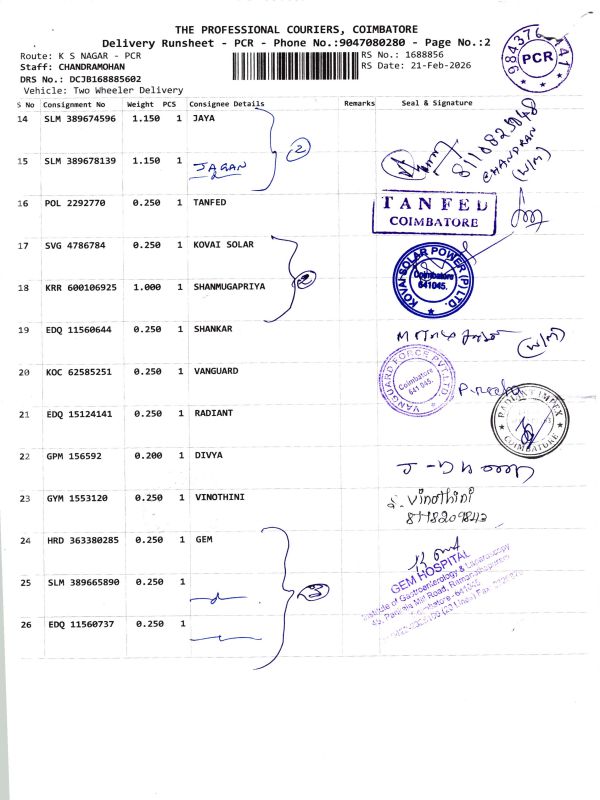 THE PROFESSIONAL COURIERS, COIMBATORE
Delivery Runsheet - PCR - Phone No.:9047080280 - Page No.:2
Route: K S NAGAR - PCR
RS No.: 1688856
Staff: CHANDRAMOHAN
RS Date: 21-Feb-2026
DRS No.: DCJB168885602
Vehicle: Two Wheeler Delivery
984376 141
PCR
S No Consignment No Weight PCS Consignee Details Remarks Seal & Signature
14 SLM 389674596 1.150 1 JAYA
2
15 SLM 389678139 1.150 1 JAGAN
8110825048
CHANDRAN
(W/M)
16 POL 2292770 0.250 1 TANFED
TANFED
COIMBATORE
17 SVG 4786784 0.250 1 KOVAI SOLAR
KOVAI SOLAR POWER (P) LTD.
Coimbatore
641045.
18 KRR 600106925 1.000 1 SHANMUGAPRIYA
2
19 EDQ 11560644 0.250 1 SHANKAR
(W/M)
20 KOC 62585251 0.250 1 VANGUARD
VANGUARD FORCE PVT.LTD
Coimbatore
641 045.
21 EDQ 15124141 0.250 1 RADIANT
RADIANT IMPEX
COIMBATORE
22 GPM 156592 0.200 1 DIVYA
23 GYM 1553120 0.250 1 VINOTHINI
S. Vinothini
24 HRD 363380285 0.250 1 GEM
GEM HOSPITAL
Institute of Gastroenterology & Laparoscopy
45, Pankaja Mill Road, Ramanathapuram
Coimbatore - 641045
25 SLM 389665890 0.250 1
3
26 EDQ 11560737 0.250 1